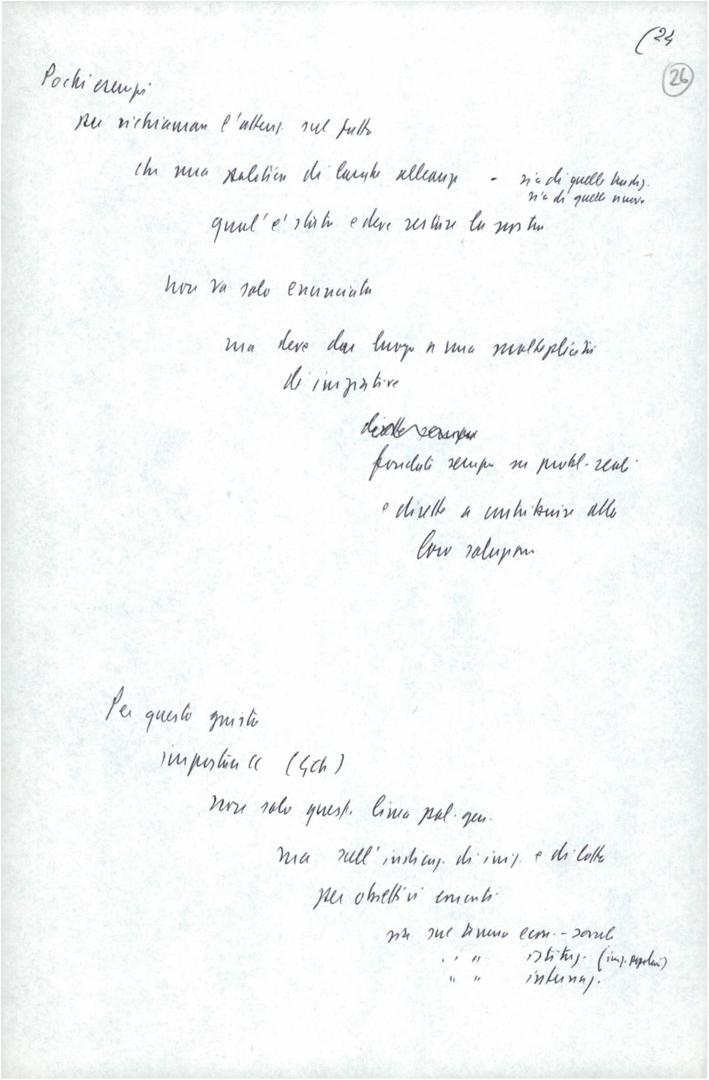 (24
26
Pochi esempi
per richiamare l'attenz. sul fatto
che una politica di larghe alleanze - sia di quelle tradiz.
sia di quelle nuove
qual'è stata e deve restare la nostra
non va solo enunciata
ma deve dar luogo a una molteplicità
di iniziative
fondate sempre su probl. reali
e dirette a contribuire alla
loro soluzione
Per questo giusto
impostare (Gch)
non solo questa linea pol. gen.
ma sull'indicaz. di iniz. e di lotte
per obiettivi concreti
sia sul terreno econ.-sociale
" " istituz. (iniz. popolari)
" " internaz.